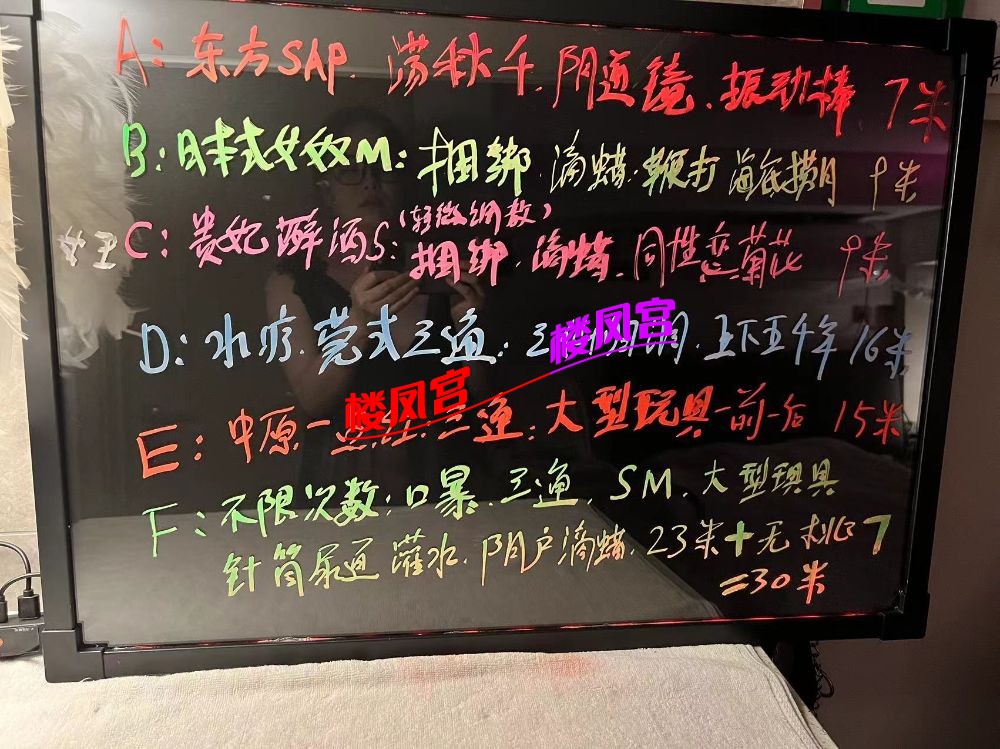 A: 东方SAP. 荡秋千. 阴道镜. 振动棒 7米
B: 日本式女奴M: 捆绑. 滴蜡. 鞭打 海底捞月 9米
(轻微调教)
女王 C: 贵妃醉酒S: 捆绑. 滴蜡. 同性恋菊花 9米
D: 水疗. 莞式三通: 三 上下五千年 16米
楼凤宫
楼凤宫
E: 中原一点红. 三通: 大型玩具一前一后 15米
F: 不限次数: 口暴. 三通. SM. 大型玩具
针筒尿道灌水. 阴户滴蜡. 23米+无 7
=30米